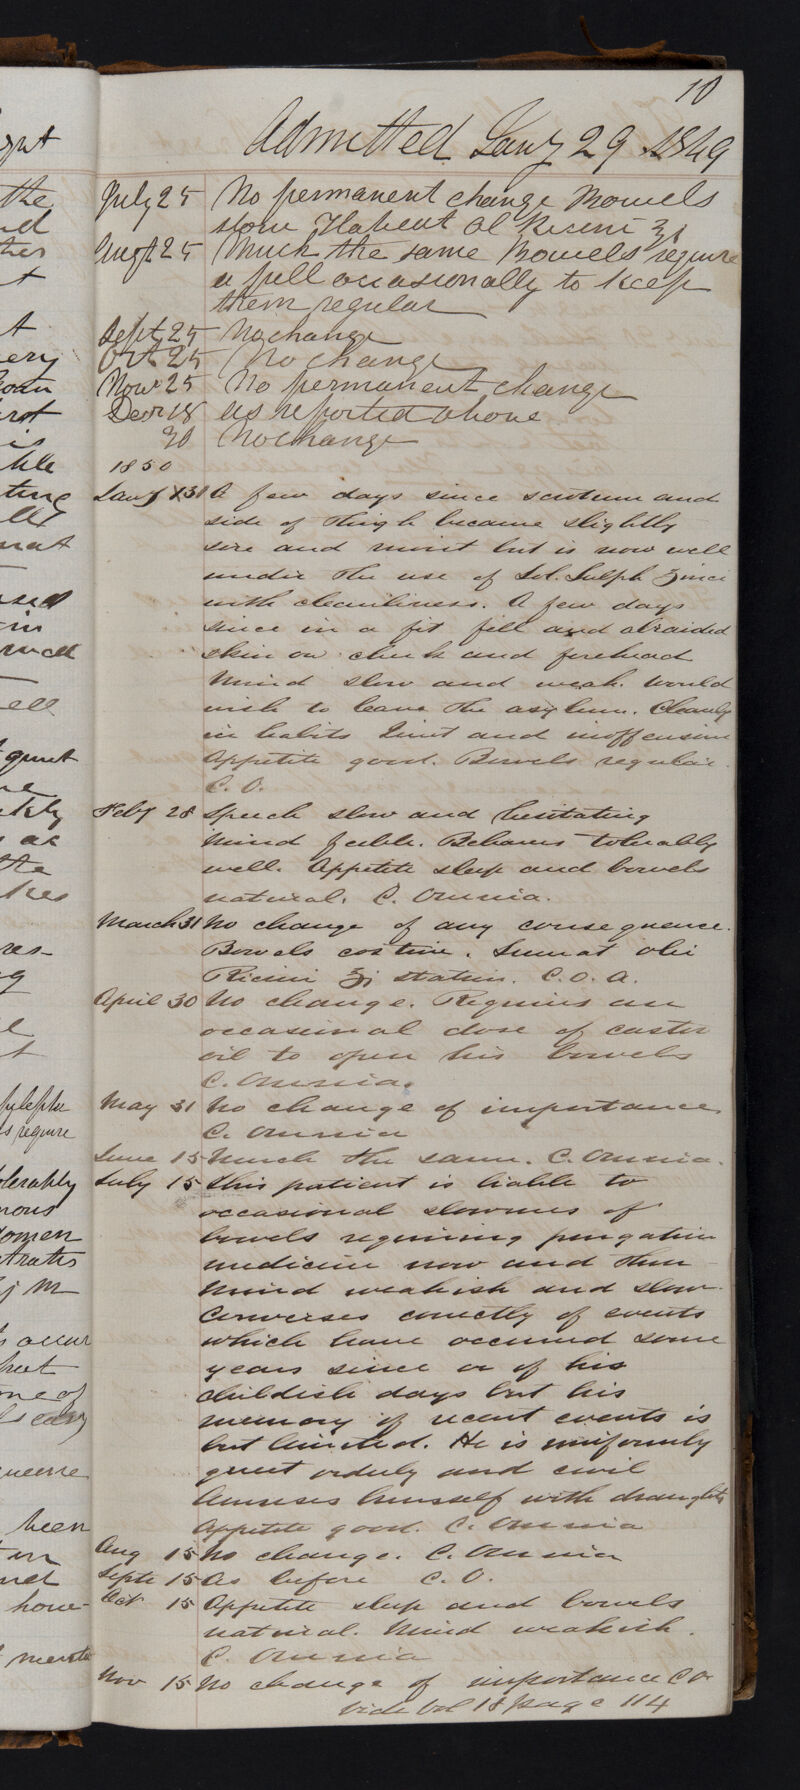 10
Admitted Jany 29 1849
July 25 No permanent change Bowels
slow Habeat Ol Ricini ʒj
Augt 25 Much the same Bowels require
a pill occasionally to keep
them regular
Sept 25 No change
Oct 25 No change
Novr 25 No permanent change
Decr 18 as reported above
30 No change
1850
Jany 31 A few days since scrotum and
side of thigh became slightly
sore and moist but is now well
under the use of Sol. Sulph Zinci
with cleanliness. A few days
since in a fit fell and abraided
skin on cheek and forehead
Mind slow and weak. Would
wish to leave the asylum. Cleanly
in habits Quiet and inoffensive
Appetite good. Bowels regular.
C. O.
Feby 28 Speech slow and hesitating
Mind feeble. Behaves tolerably
well. Appetite sleep and bowels
natural. C. Omnia.
March 31 No change of any consequence.
Bowels costive. Sumat olei
Ricini ʒj statim. C. O. A.
April 30 No change. Requires an
occasional dose of castor
oil to open his bowels
C. Omnia.
May 31 No change of importance
C. Omnia
June 15 Much the same. C. Omnia.
July 15 This patient is liable to
occasional slowness of
bowels requiring purgative
medicine now and then
Mind weakish and slow.
Converses correctly of events
which have occurred some
years since or of his
childish days but his
memory of recent events is
but limited. He is uniformly
quiet orderly and civil
Amuses himself with draughts
Appetite good. C. Omnia
Aug 15 No change. C. Omnia
Septr 15 As before C. O.
Oct 15 Appetite sleep and bowels
natural. Mind weakish.
C. Omnia
Nov 15 No change of importance C O
vide Vol 18 page 114